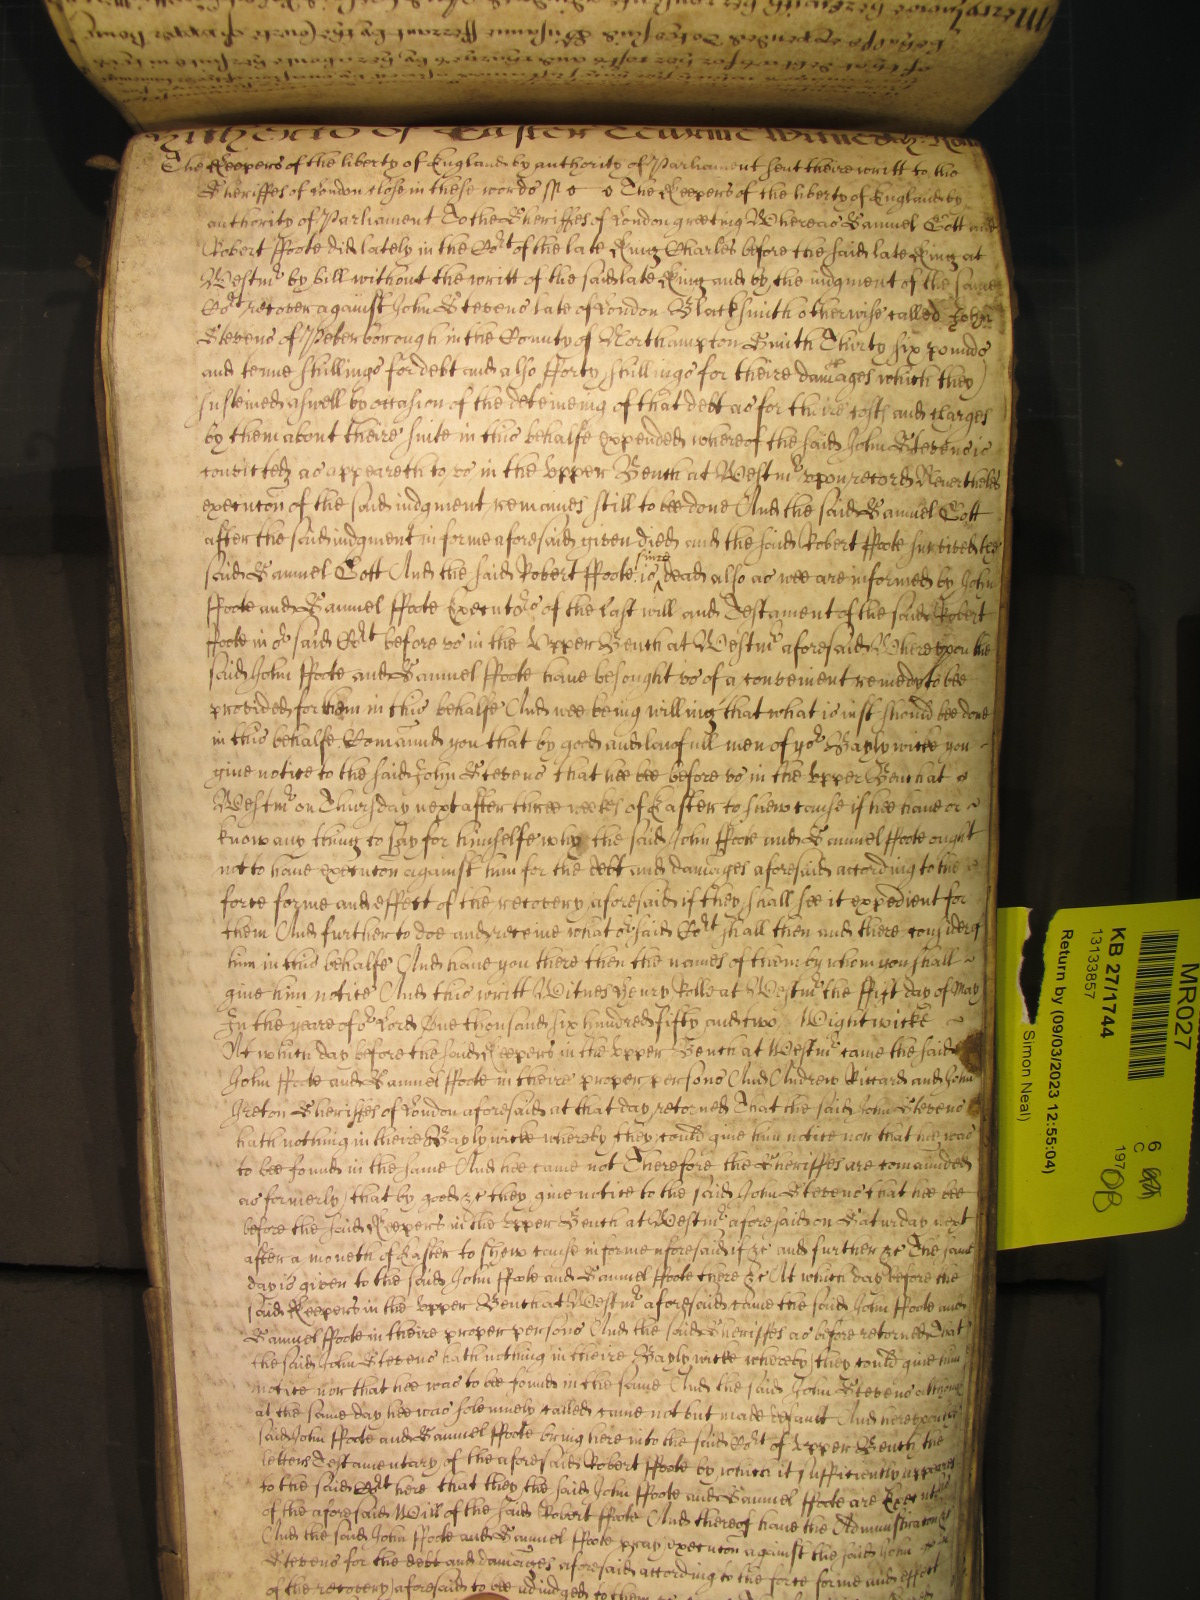 Hitherto of Easter Tearme Witnes H:
The Keepers of the liberty of England by authority of Parliament sent theire writt to the
Sheriffes of London close in these words ss The Keepers of the liberty of England by
authority of Parliament To the Sheriffes of London greeting Whereas Samuel Cott and
Robert ffoote did lately in the Cort of the late King Charles before the said late King at
Westmr by bill without the writt of the said late King and by the iudgment of the same
Cort recover against John Stevens late of London Blacksmith otherwise called John
Stevens of Peterborough in the County of Northampton Smith Thirty six pounds
and tenne shillings for debt and also fforty shillings for theire damages which they
susteined aswell by occasion of the deteineing of that debt as for theire costs and charges
by them about theire suite in this behalfe expended whereof the said John Stevens is
convicted as appeareth to vs in the vpper Bench at Westmr vpon record Neverthelés
execucon of the said iudgment remaines still to bee done And the said Samuel Cott
after the said iudgment in forme aforesaid given died and the said Robert ffoote survived the
said Samuel Cott And the said Robert ffoote is since dead also as wee are informed by John
ffoote and Samuel ffoote Executors of the last will and Testament of the said Robert
ffoote in or said Cort before vs in the Vpper Bench at Westmr aforesaid Wherevpon the
said John ffoote and Samuel ffoote have besought vs of a convenient remedy to bee
provided for them in this behalfe And wee being willing that what is iust should bee done
in this behalfe Comaund you that by good and lawfull men of yor Baylywicke you
give notice to the said John Stevens that hee bee before vs in the vpper Bench at
Westmr on Thursday next after three weekes of Easter to shew cause if hee have or
know any thing to say for himselfe why the said John ffoote and Samuel ffoote ought
not to have execucon against him for the debt and damages aforesaid according to the
force forme and effect of the recovery aforesaid if they shall see it expedient for
them And further to doe and receive what or said Cort shall then and there consider of
him in this behalfe And have you there then the names of them by whom you shall
give him notice And this writt Witnes Henry Rolle at Westmr the ffift day of May
In the yeare of or Lord One thousand six hundred fifty and two Wightwicke
At which day before the said Keepers in the vpper Bench at Westmr came the said
John ffoote and Samuel ffoote in theire proper persons And Andrew Riccard and John
Ireton Sheriffes of London aforesaid at that day retorned That the said John Stevens
hath nothing in theire Baylywicke whereby they could give him notice nor that hee was
to bee found in the same And hee came not Therefore the Sheriffes are comaunded
as formerly that by good &c they give notice to the said John Stevens that hee bee
before the said Keepers in the vpper Bench at Westmr aforesaid on Saturday next
after a moneth of Easter to shew cause in forme aforesaid if &c and further &c The same
day is given to the said John ffoote and Samuel ffoote there &c At which day before the
said Keepers in the vpper Bench at Westmr aforesaid came the said John ffoote and
Samuel ffoote in theire proper persons And the said Sheriffes as before retorned That
the said John Stevens hath nothing in theire Baylywicke whereby they could give him
notice nor that hee was to bee found in the same And the said John Stevens although
at the same day hee was solemnely called came not but made default And herevpon the
said John ffoote and Samuel ffoote bring here into the said Cort of Vpper Bench the
letters Testamentary of the aforesaid Robert ffoote by which it sufficiently appeares
to the said Cort here that they the said John ffoote and Samuel ffoote are Executors
of the aforesaid Will of the said Robert ffoote And thereof have the Administracon &c
And the said John ffoote and Samuel ffoote pray execucon against the said John
Stevens for the debt and damages aforesaid according to the force forme and effect
of the recovery aforesaid to bee adiudged to them
MR027
KB 27/1744
13133857
Return by (09/03/2023 12:55:04)
Simon Neal)
6
C
197